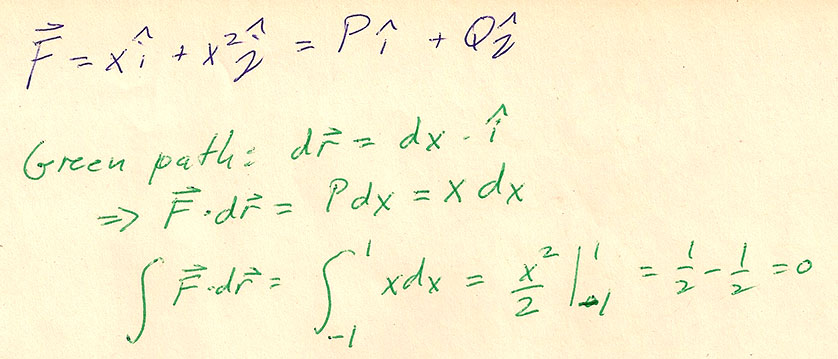 F⃗ = x î + x² ĵ = P î + Q ĵ
Green path: dr⃗ = dx · î
⇒ F⃗ · dr⃗ = P dx = x dx
∫ F⃗ · dr⃗ = ∫₋₁¹ x dx = x²/2 |₋₁¹ = 1/2 - 1/2 = 0